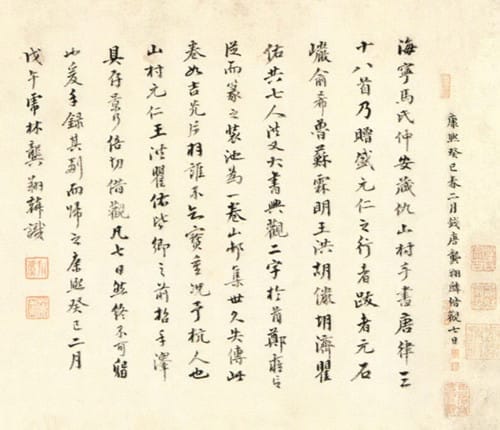 康熙癸巳春二月錢唐龔翔麟借觀七日
海寧馬氏仲安藏仇山村手書唐律三
十八首乃贈盛元仁之行者跋者元石
巖俞希魯蘇霖明王洪胡儼胡濟瞿
佑共七人洪又大書興觀二字於首鄭雍言
從而篆之裝池為一卷山邨集世久失傳此
卷如吉光片羽誰不知寶重況予杭人也
山村元仁王洪瞿佑皆鄉之前哲手澤
具存景行倍切借觀凡七日然終不可留
也爰手錄其副而歸之康熙癸巳二月
戊午虎林龔翔麟識